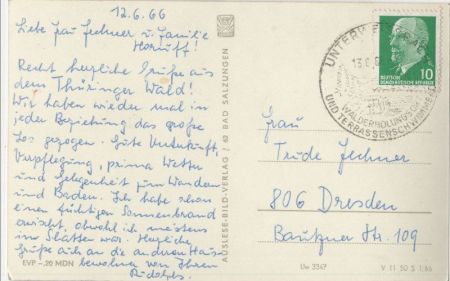 12.6.66
Liebe Frau Jechner u. Familie
Horuff!
Recht herzliche Grüße aus
dem Thüringer Wald!
Wir haben wieder mal in
jeder Beziehung das große
Los gezogen. Gute Unterkunft,
Verpflegung, prima Wetter
und Gelegenheit zum Wandern
und Baden. Ich habe schon
einen tüchtigen Sonnenbrand
erwischt, obwohl ich meistens
im Schatten war. Herzliche
Grüße auch an die anderen Haus-
bewohner von Ihren
EVP -,20 MDN
AUSLESE-BILD-VERLAG 62 BAD SALZUNGEN
UNTERWE
13.6.
WALDERHOLUNGSORT
UND TERRASSENSCHWIMMB
DEUTSCHE
DEMOKRATISCHE REPUBLIK
10
Frau
Trude Jechner
806 Dresden
Bautzner Str. 109
Uw 3347
V 11 50 S 1/66